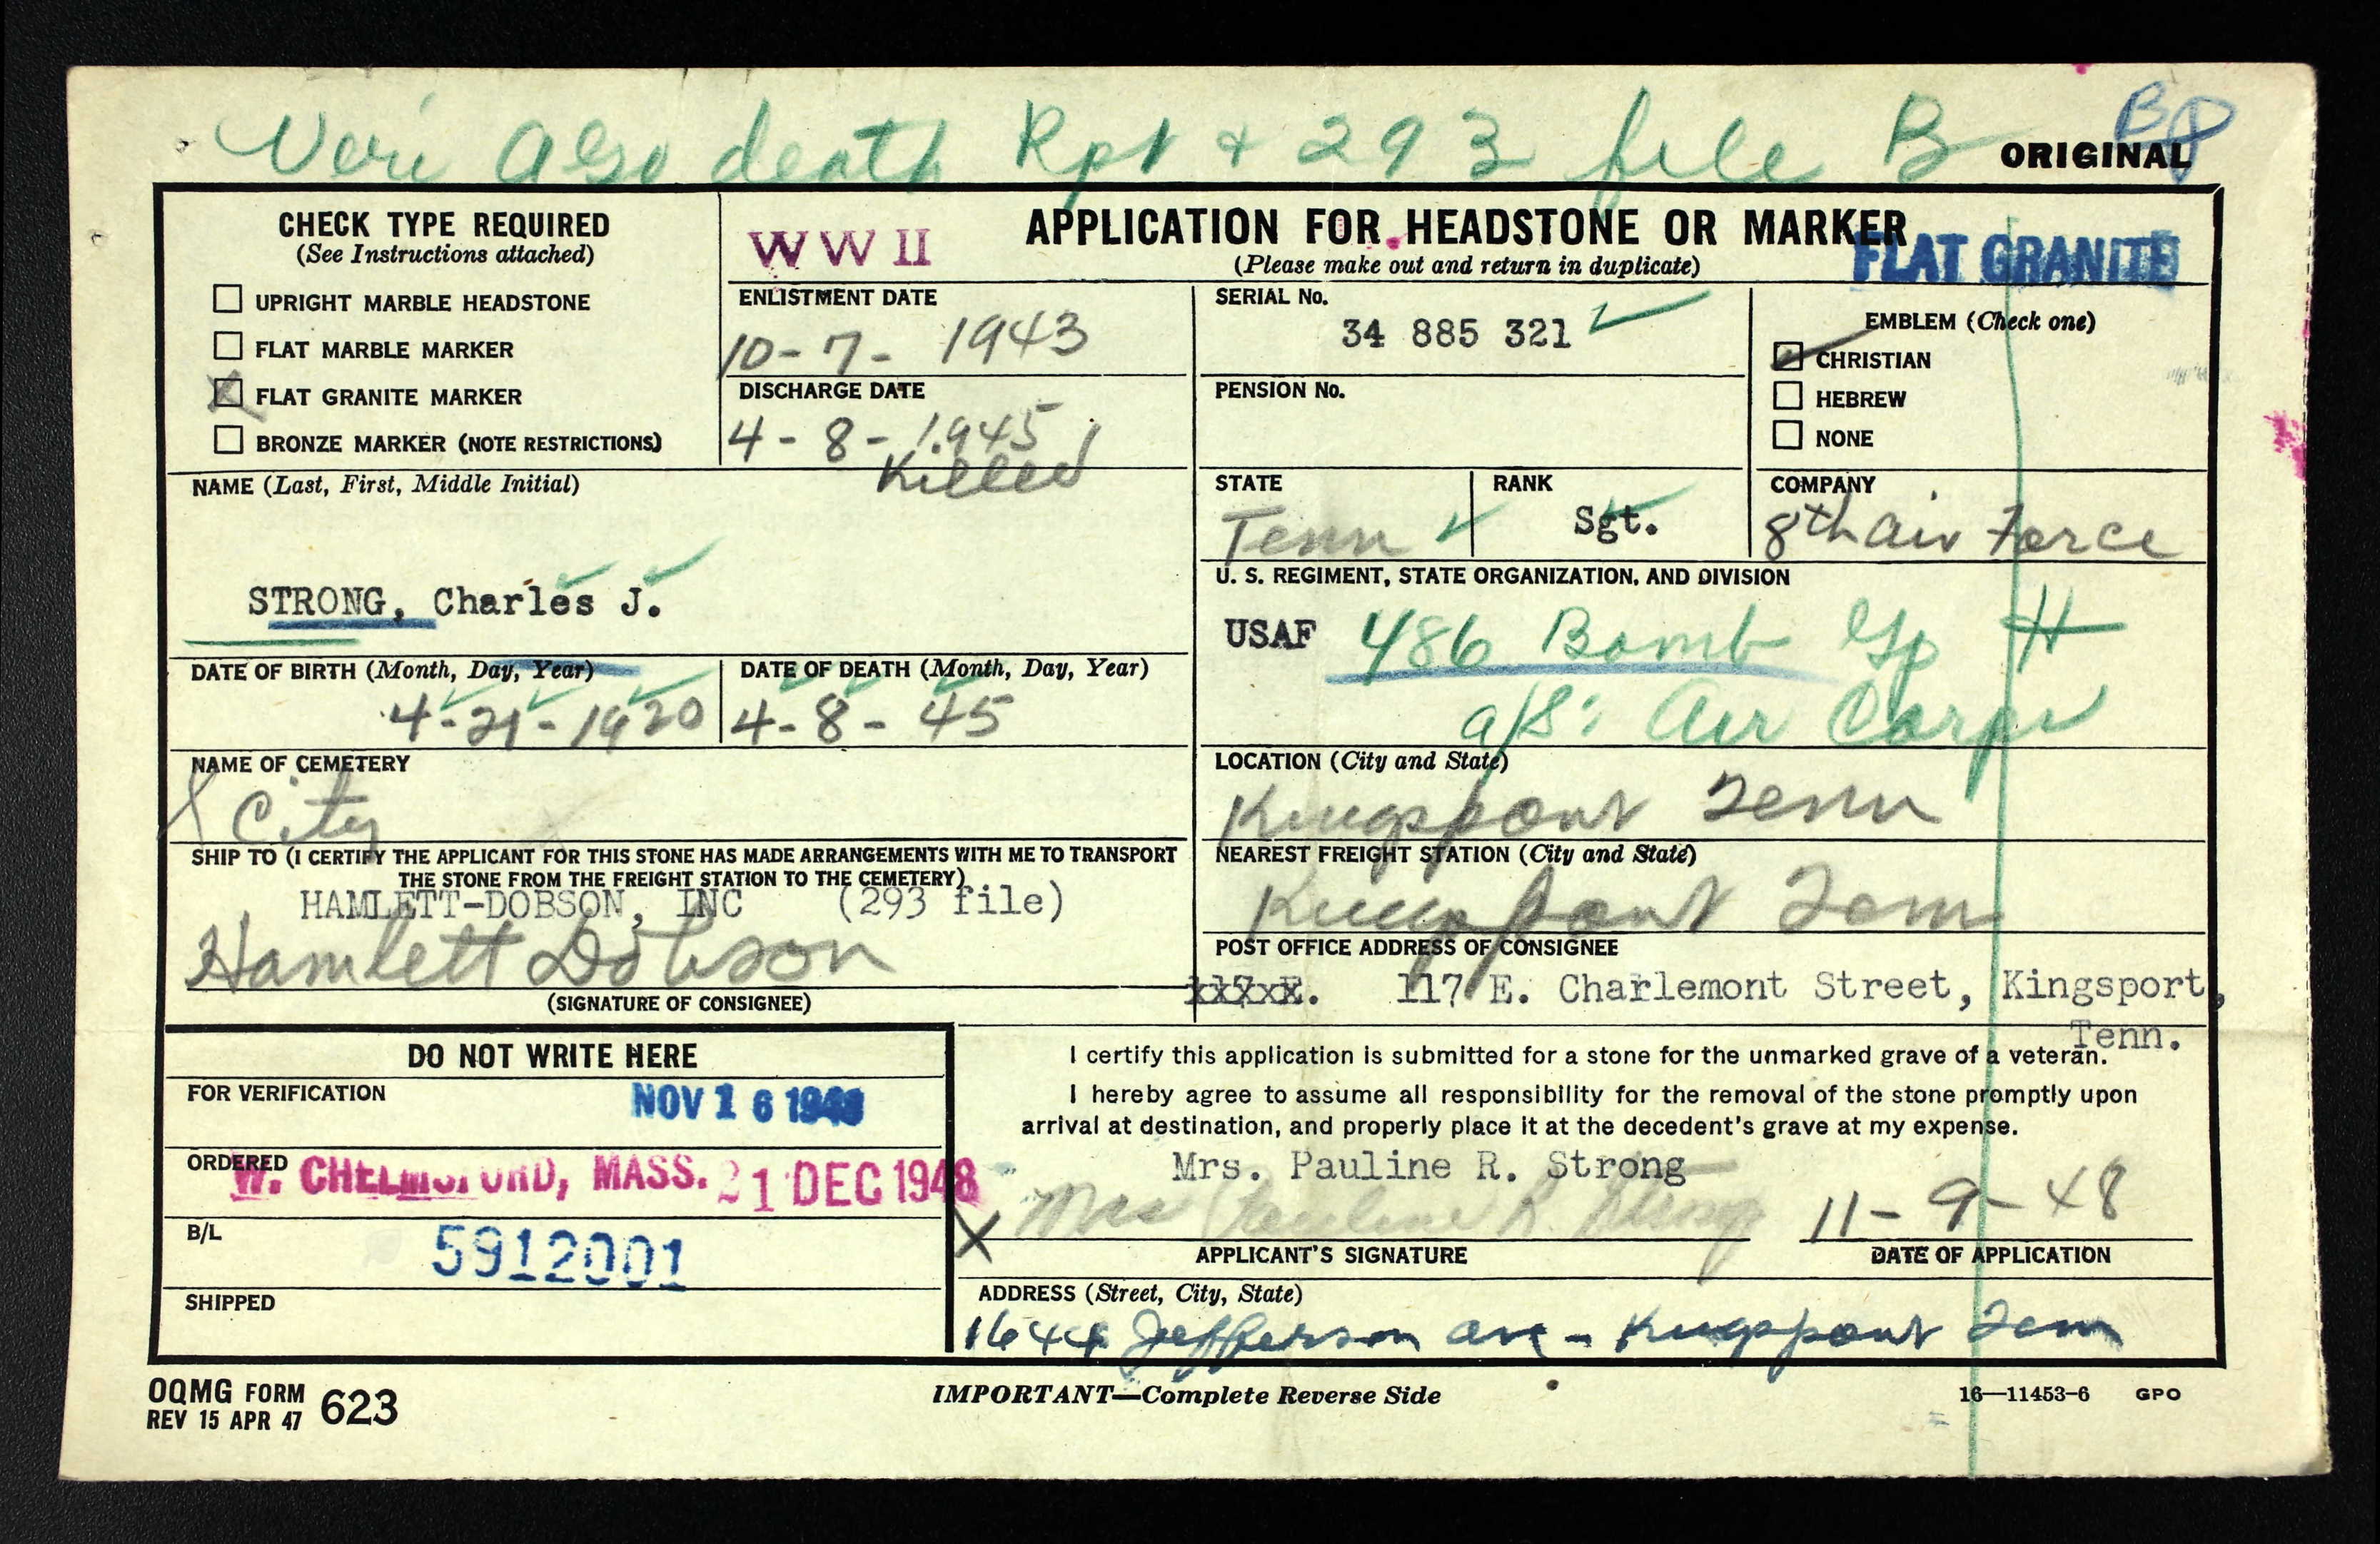 Veri Also death Rpt + 293 file B
ORIGINAL
CHECK TYPE REQUIRED
(See Instructions attached)
UPRIGHT MARBLE HEADSTONE
FLAT MARBLE MARKER
X FLAT GRANITE MARKER
BRONZE MARKER (NOTE RESTRICTIONS)
WWII
APPLICATION FOR HEADSTONE OR MARKER
(Please make out and return in duplicate)
FLAT GRANITE
ENLISTMENT DATE
10-7-1943
DISCHARGE DATE
4-8-1945
Killed
SERIAL No.
34 885 321
PENSION No.
EMBLEM (Check one)
CHRISTIAN
HEBREW
NONE
NAME (Last, First, Middle Initial)
STRONG, Charles J.
STATE
Tenn
RANK
Sgt.
COMPANY
8th Air Force
U. S. REGIMENT, STATE ORGANIZATION, AND DIVISION
USAF 486 Bomb Gp H
a/s: Air Corps
DATE OF BIRTH (Month, Day, Year)
4-21-1920
DATE OF DEATH (Month, Day, Year)
4-8-45
NAME OF CEMETERY
City
LOCATION (City and State)
Kingsport Tenn
SHIP TO (I CERTIFY THE APPLICANT FOR THIS STONE HAS MADE ARRANGEMENTS WITH ME TO TRANSPORT
THE STONE FROM THE FREIGHT STATION TO THE CEMETERY)
HAMLETT-DOBSON, INC (293 file)
Hamlett Dobson
(SIGNATURE OF CONSIGNEE)
NEAREST FREIGHT STATION (City and State)
Kingsport Tenn
POST OFFICE ADDRESS OF CONSIGNEE
117 E. Charlemont Street, Kingsport,
Tenn.
DO NOT WRITE HERE
FOR VERIFICATION
NOV 16 1948
ORDERED
W. CHELMSFORD, MASS. 21 DEC 1948
B/L
5912001
SHIPPED
I certify this application is submitted for a stone for the unmarked grave of a veteran.
I hereby agree to assume all responsibility for the removal of the stone promptly upon
arrival at destination, and properly place it at the decedent's grave at my expense.
Mrs. Pauline R. Strong
X Mrs Pauline R. Strong 11-9-48
APPLICANT'S SIGNATURE
DATE OF APPLICATION
ADDRESS (Street, City, State)
1644 Jefferson ave - Kingsport Tenn
OQMG FORM 623
REV 15 APR 47
IMPORTANT—Complete Reverse Side
16—11453-6 GPO